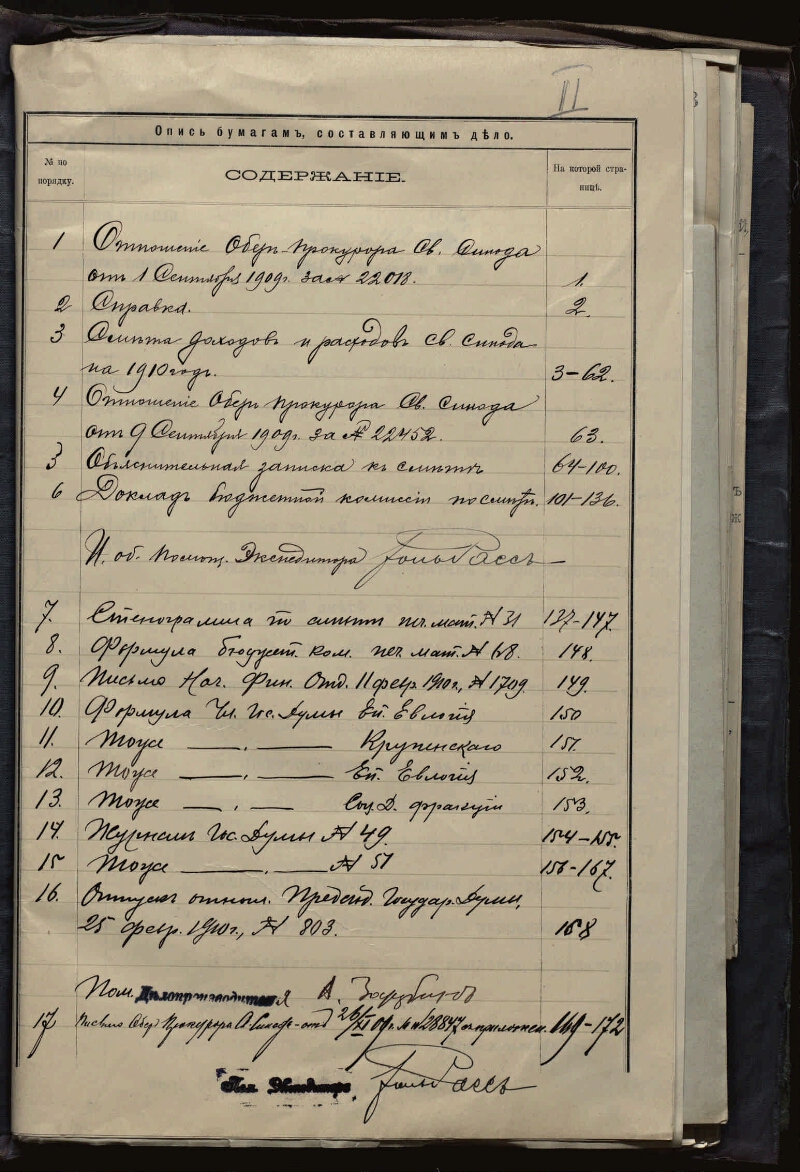 II
Опись бумагамъ, составляющимъ дѣло.
№ по порядку.
СОДЕРЖАНІЕ.
На которой стра-
ницѣ.
1 Отношеніе Обер-прокурора Св. Синода
отъ 1 Сентября 1909г. за № 22018. 1.
2 Справка. 2.
3 Смѣта доходовъ и расходовъ Св. Синода
на 1910 годъ. 3-62.
4 Отношеніе Обер прокурора Св. Синода
отъ 9 Сентября 1909г. за № 22452. 63.
5 Объяснительная записка къ смѣтѣ 64-100.
6 Докладъ бюджетной комиссіи по смѣтѣ. 101-136.
И. об. Помощ. Экспедитора
7. Стенограмма по смѣтѣ печ. мат. № 31 137-147.
8. Формула бюджет. ком. печ. мат. № 68. 148.
9. Письмо Нач. Фин. Отд. 11 февр. 1910 г., № 1709. 149.
10. Формула Чл. Гос. Думы Еп. Евлогія 150
11. Тоже —— „ —— Крупенскаго 151.
12. Тоже —— „ —— Еп. Евлогія 152.
13. Тоже —— „ —— Соц. Д. фракціи 153.
14. Журналъ Гос. Думы № 49. 154-155.
15 Тоже —— „ —— № 51 156-167.
16. Отпускъ отнош. Предсѣд. Государ. Думы,
25 февр. 1910 г., № 803. 168
Пом. Дѣлопроизводителя А.
17 Письмо Обер Прокурора Св. Синода отъ 26/XI 09 г. № 28847 съ приложен. 169-172
Пом. Экспедитора